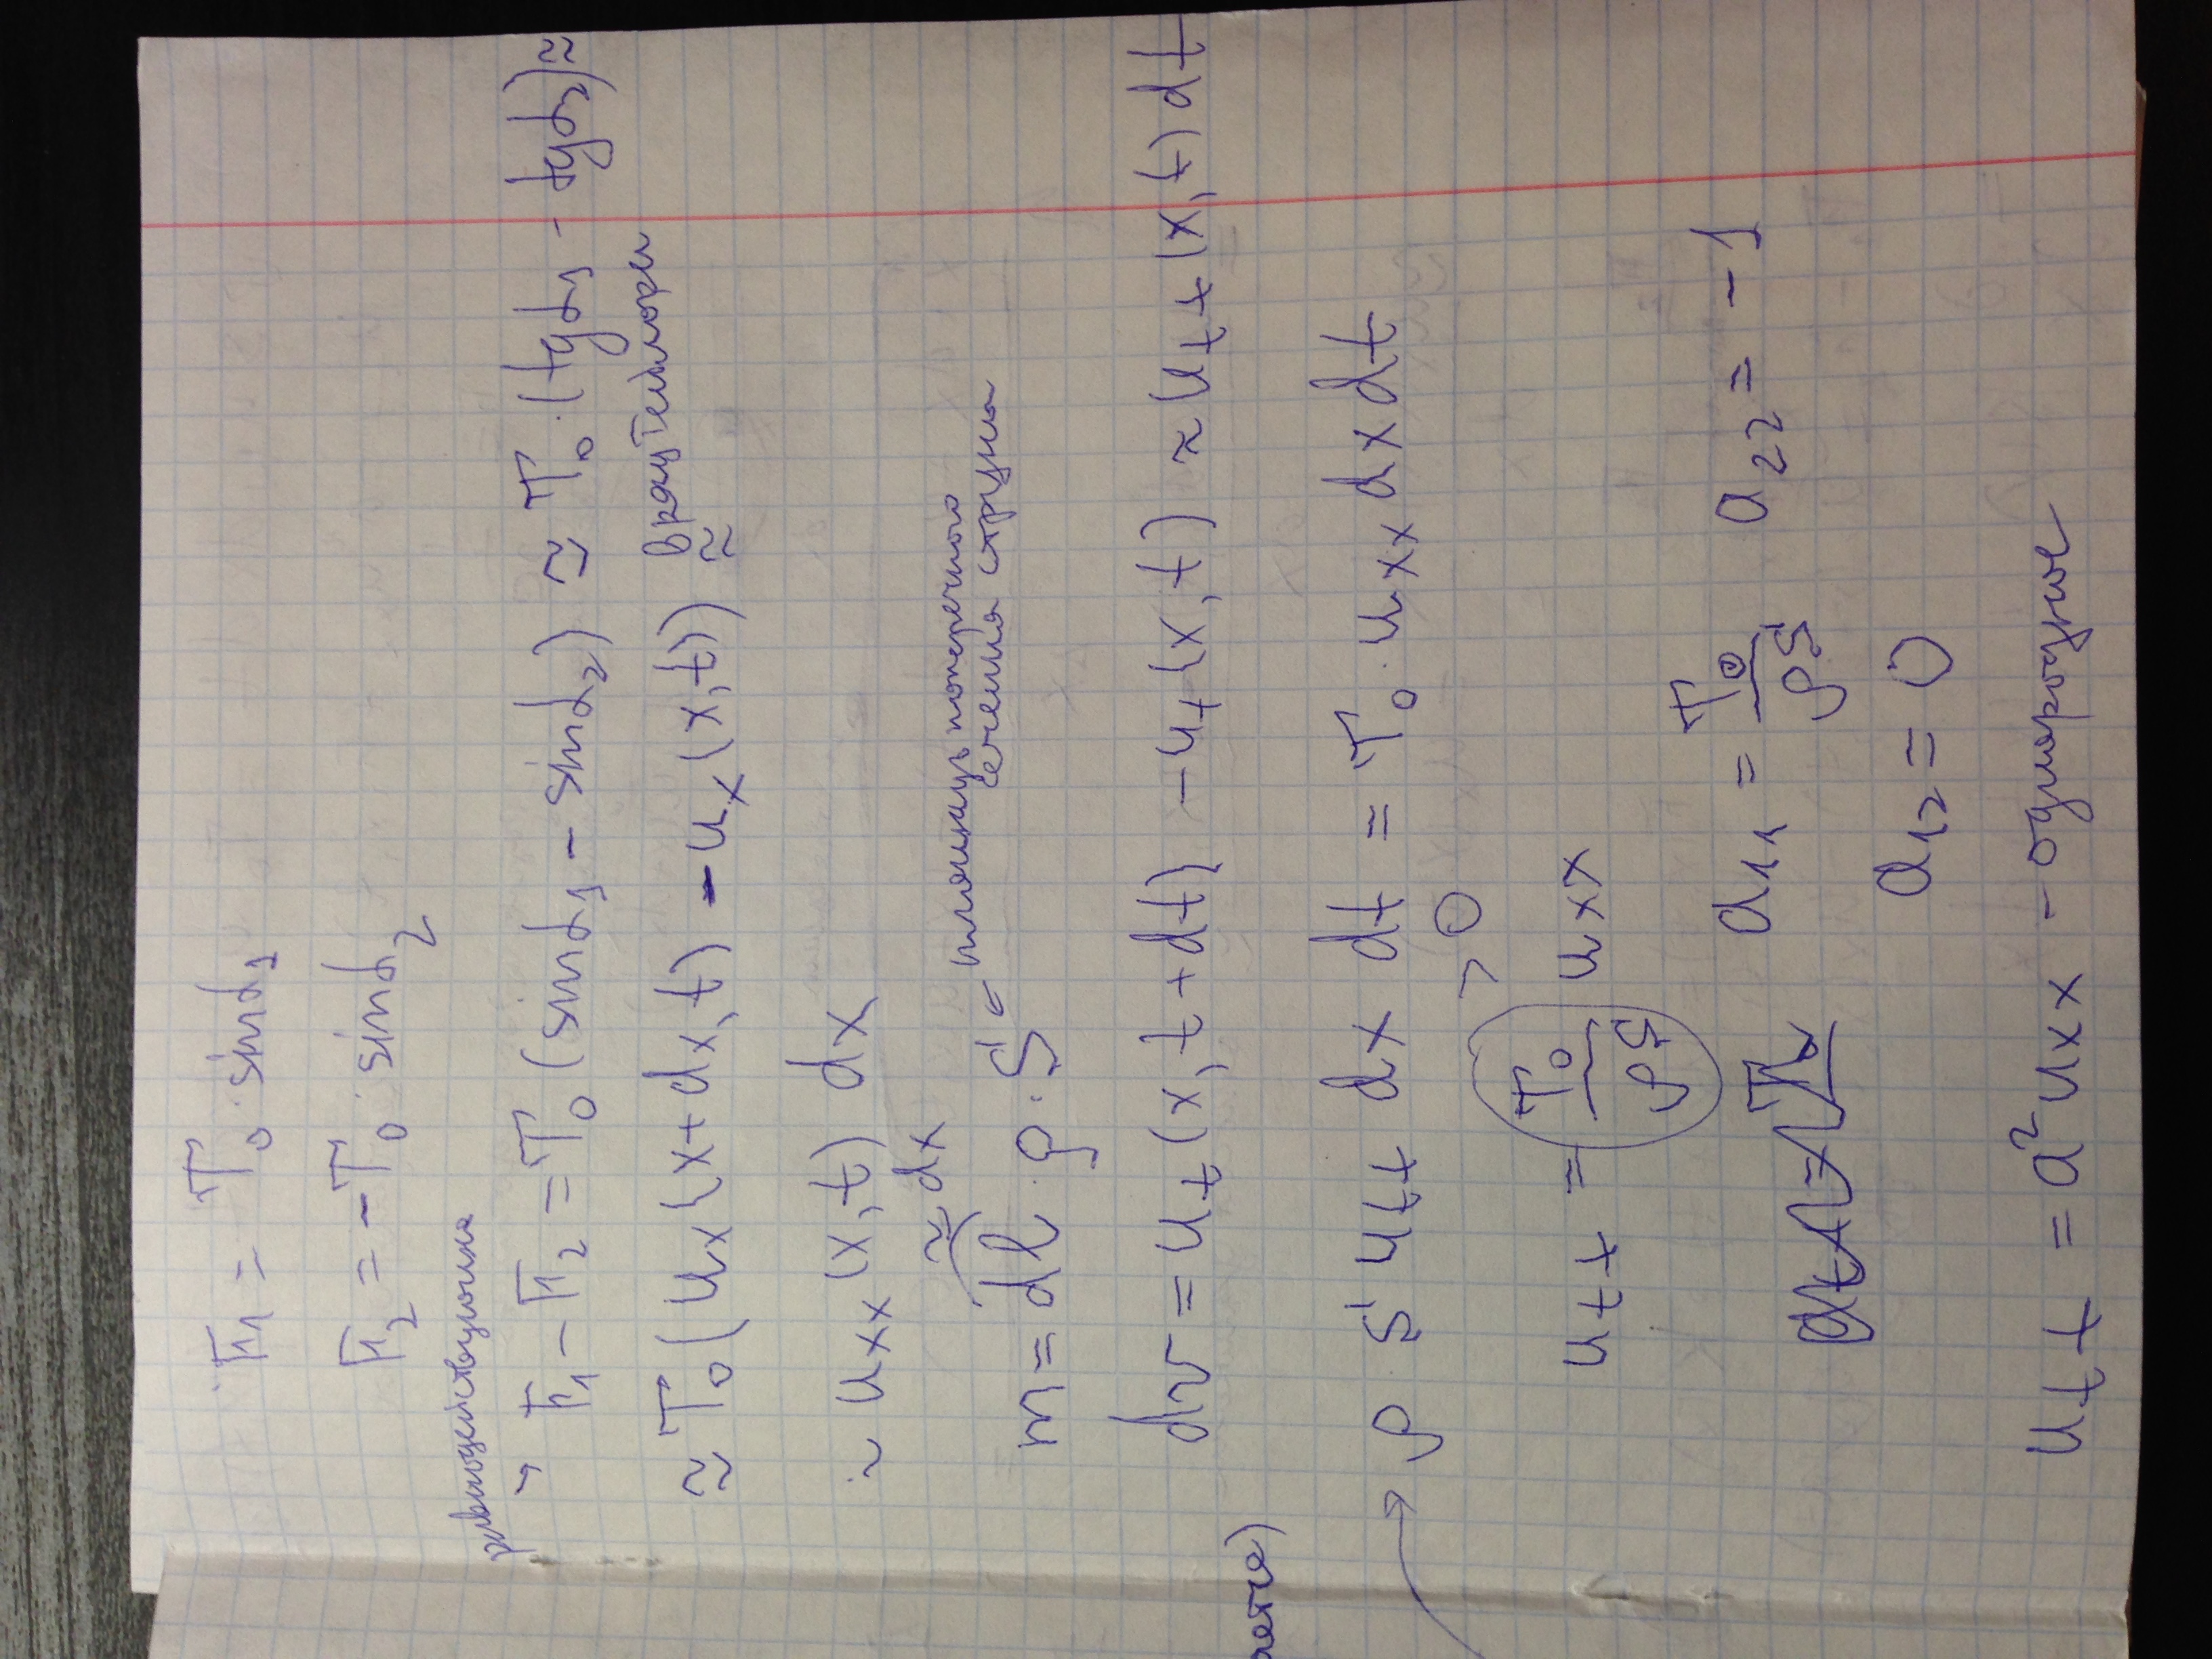 F₁ = T₀·sinα₁
F₂ = -T₀·sinα₂
равнодействующая
F₁ - F₂ = T₀(sinα₁ - sinα₂) ≈ T₀·(tgα₁ - tgα₂) ≈
≈ T₀(uₓ(x+dx,t) - uₓ(x,t)) ≈
Тейлора
~ uₓₓ(x,t) dx
≈ dx
m = dl·ρ·S - площадь поперечного
сечения струны
dv = uₜ(x,t+dt) - uₜ(x,t) ≈ uₜₜ(x,t)dt
ρ S uₜₜ dx dt = T₀·uₓₓ dx dt
> 0
uₜₜ = T₀/ρS uₓₓ
a₁₁ = T₀/ρS a₂₂ = -1
a₁₂ = 0
uₜₜ = a² uₓₓ - однородное